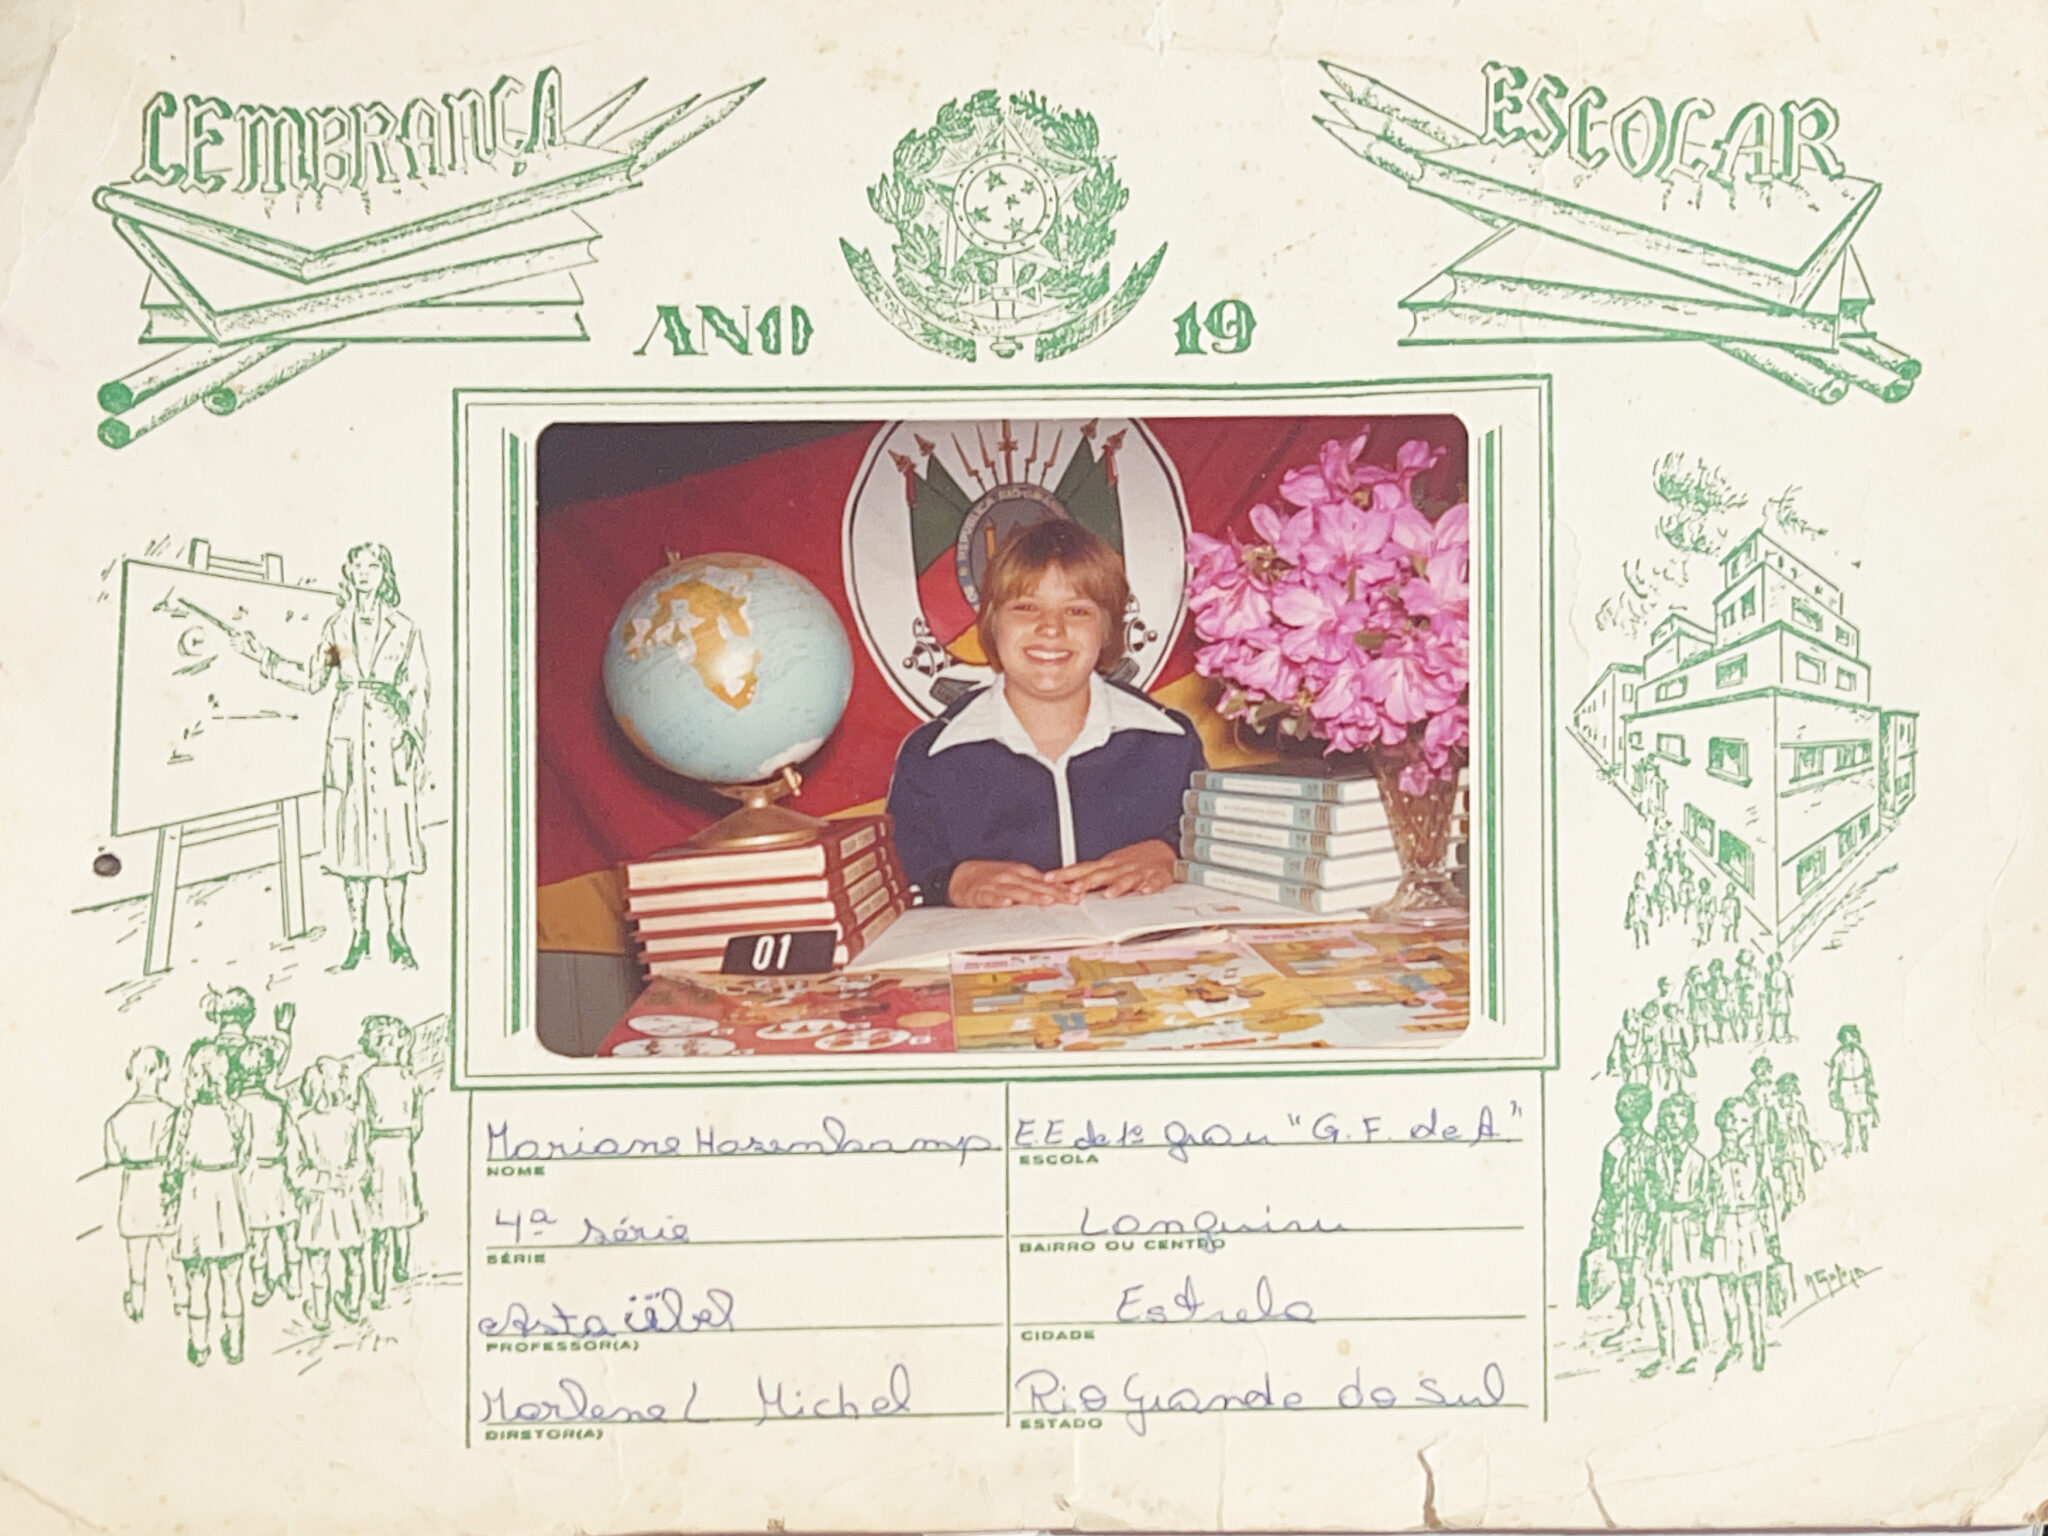 LEMBRANÇA ESCOLAR
ANO 19
01
Mariane Hazenkamp
NOME
4ª série
SÉRIE
Asta
PROFESSOR(A)
Marlene L Michel
DIRETOR(A)
E.E de 1º grau "G. F. de A."
ESCOLA
Languiru
BAIRRO OU CENTRO
Estrela
CIDADE
Rio Grande do Sul
ESTADO